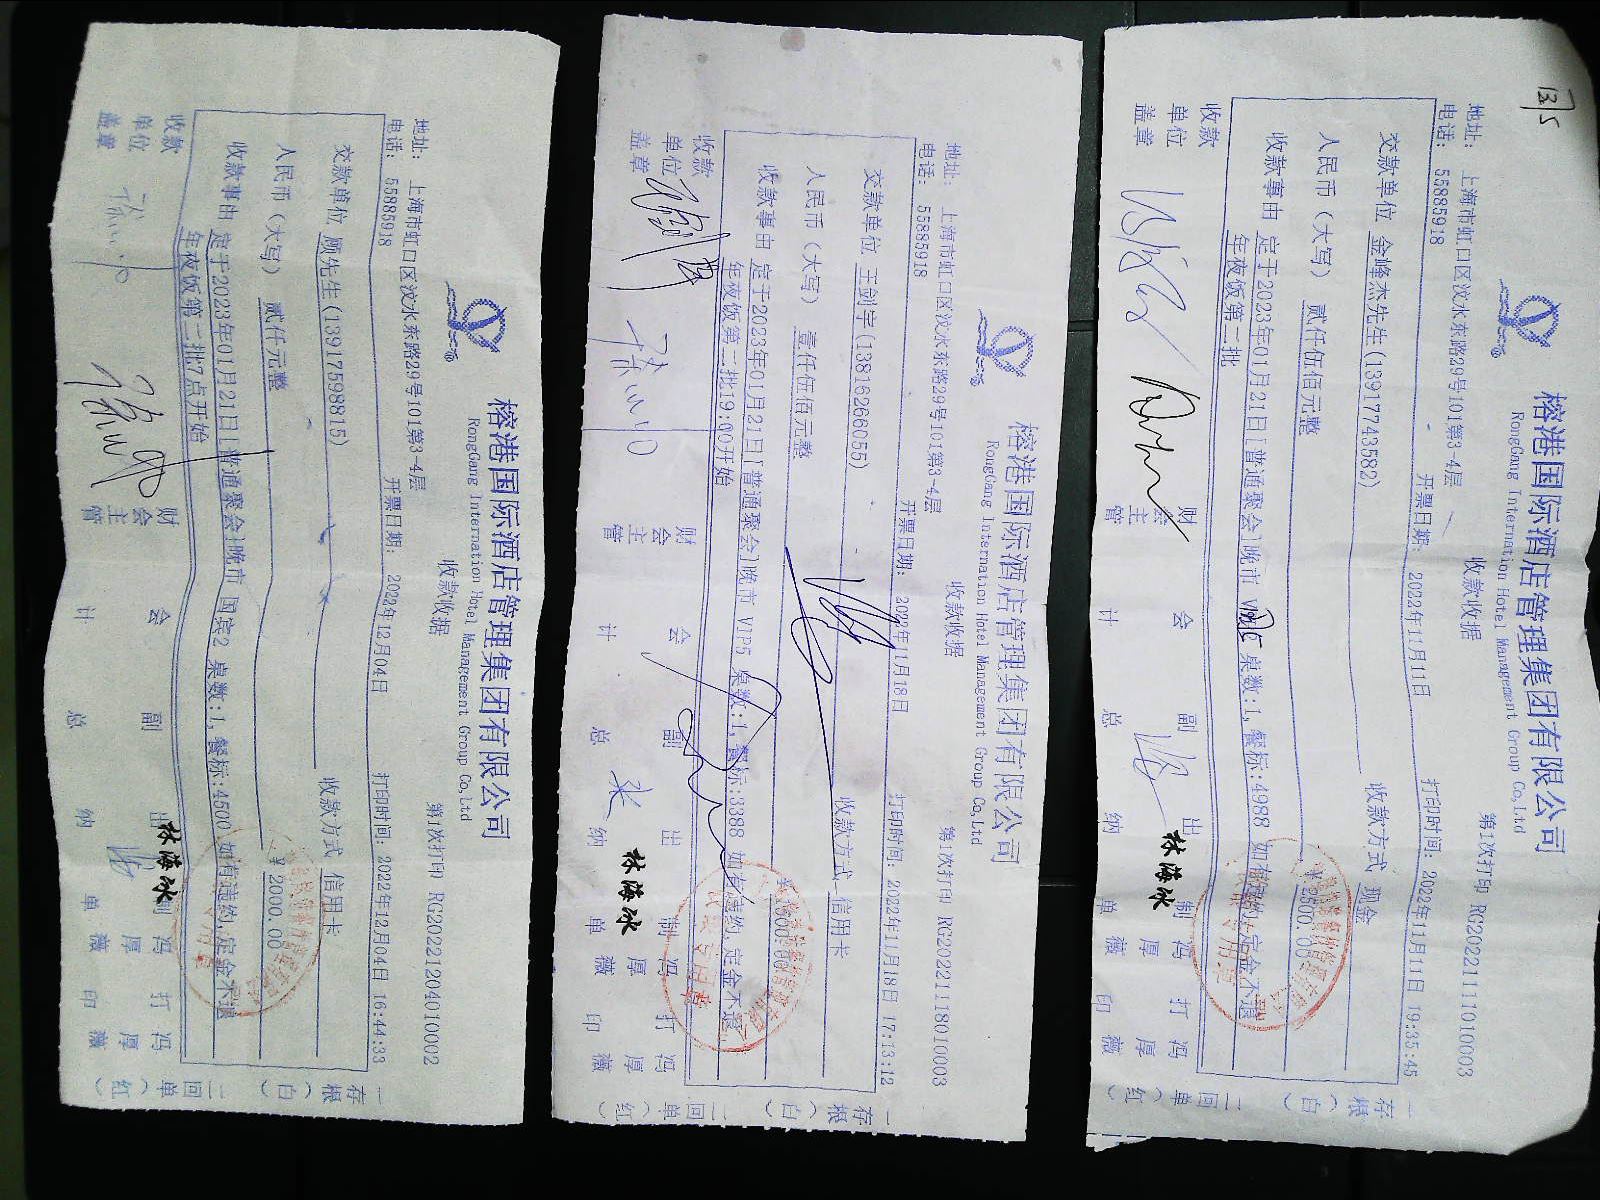 榕港国际酒店管理集团有限公司
RongGang Internation Hotel Management Group Co,Ltd
收款收据
第1次打印 RG20221204010002
地址: 上海市虹口区汶水东路29号101第3-4层
电话: 55885918
开票日期: 2022年12月04日
打印时间: 2022年12月04日 16:44:33
交款单位 顾先生(13917598815)
收款方式 信用卡
人民币（大写） 贰仟元整
￥2000.00
收款事由 定于2023年01月21日[普通聚会]晚市 国宾2 桌数:1,餐标:4500 如有违约,定金不退
年夜饭第二批7点开始
收款单位盖章
财会主管
会计
副总
出纳
林海冰
制单 冯厚薇
打印 冯厚薇
一存根（白）
二回单（红）
榕港国际酒店管理集团有限公司
RongGang Internation Hotel Management Group Co,Ltd
收款收据
第1次打印 RG20221118010003
地址: 上海市虹口区汶水东路29号101第3-4层
电话: 55885918
开票日期: 2022年11月18日
打印时间: 2022年11月18日 17:13:12
交款单位 王剑宇(13816266055)
收款方式 信用卡
人民币（大写） 壹仟伍佰元整
收款事由 定于2023年01月21日[普通聚会]晚市 VIP5 桌数:1,餐标:3388 如有违约,定金不退,
年夜饭第二批19:00开始
收款单位盖章
财会主管
会计
副总
出纳
林海冰
制单 冯厚薇
打印 冯厚薇
一存根（白）
二回单（红）
榕港国际酒店管理集团有限公司
RongGang Internation Hotel Management Group Co,Ltd
收款收据
第1次打印 RG20221111010003
地址: 上海市虹口区汶水东路29号101第3-4层
电话: 55885918
开票日期: 2022年11月11日
打印时间: 2022年11月11日 19:35:45
交款单位 金峰杰先生(13917743582)
收款方式 现金
人民币（大写） 贰仟伍佰元整
￥2500.00
收款事由 定于2023年01月21日[普通聚会]晚市 桌数:1,餐标:4988 如有违约,定金不退
年夜饭第二批
收款单位盖章
财会主管
会计
副总
出纳
林海冰
制单 冯厚薇
打印 冯厚薇
一存根（白）
二回单（红）